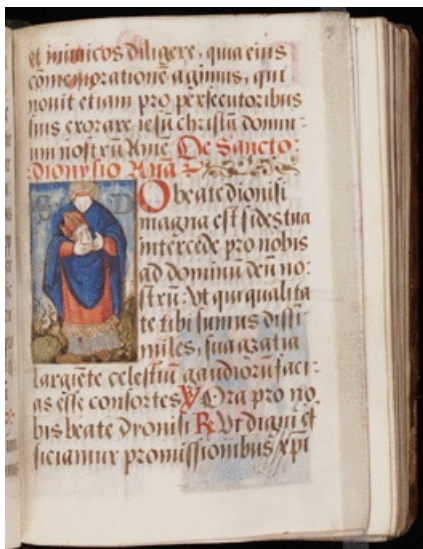 et inimicos diligere, quia eius
cōmemorationē agimus, qui
novit etiam pro persecutoribus
suis exorare iesū christū domin-
um nostrū Ame. De Sancto
dionysio Anā
S D
O beate dionisi
magna est fides tua
intercede pro nobis
ad dominū deū no-
strū: Vt qui qualita
te tibi sumus dissi
miles, sua gratia
largiēte celestiū gaudiorū faci-
as esse consortes V Ora pro no.
bis beate dyonisi R Vt digni ef
ficiamur promissionibus xpi